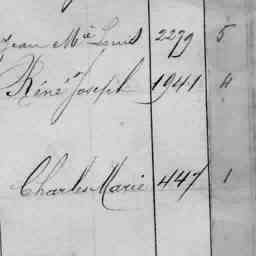 Jean Mie Louis 2279 5
Réné Joseph 1941 4
Charles Marie 447 1